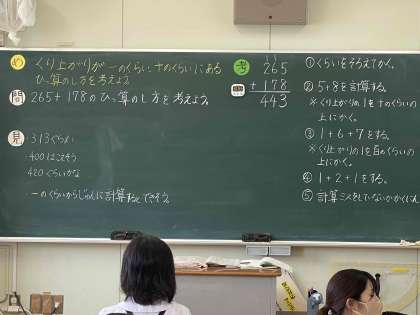 め くり上がりが一のくらい、十のくらいにある
ひっ算のし方を考えよう。
問 265+178のひっ算のし方を考えよう。
見
313ぐらい
400はこえそう
420ぐらいかな
一のくらいからじゅんに計算するとできそう。
考
1 1
265
+ 178
443
①くらいをそろえてかく。
②5+8を計算する。
※くり上がりの1を十のくらいの
上にかく。
③1+6+7をする。
※くり上がりの1を百のくらいの
上にかく。
④1+2+1をする。
⑤計算ミスをしていないかかくにん